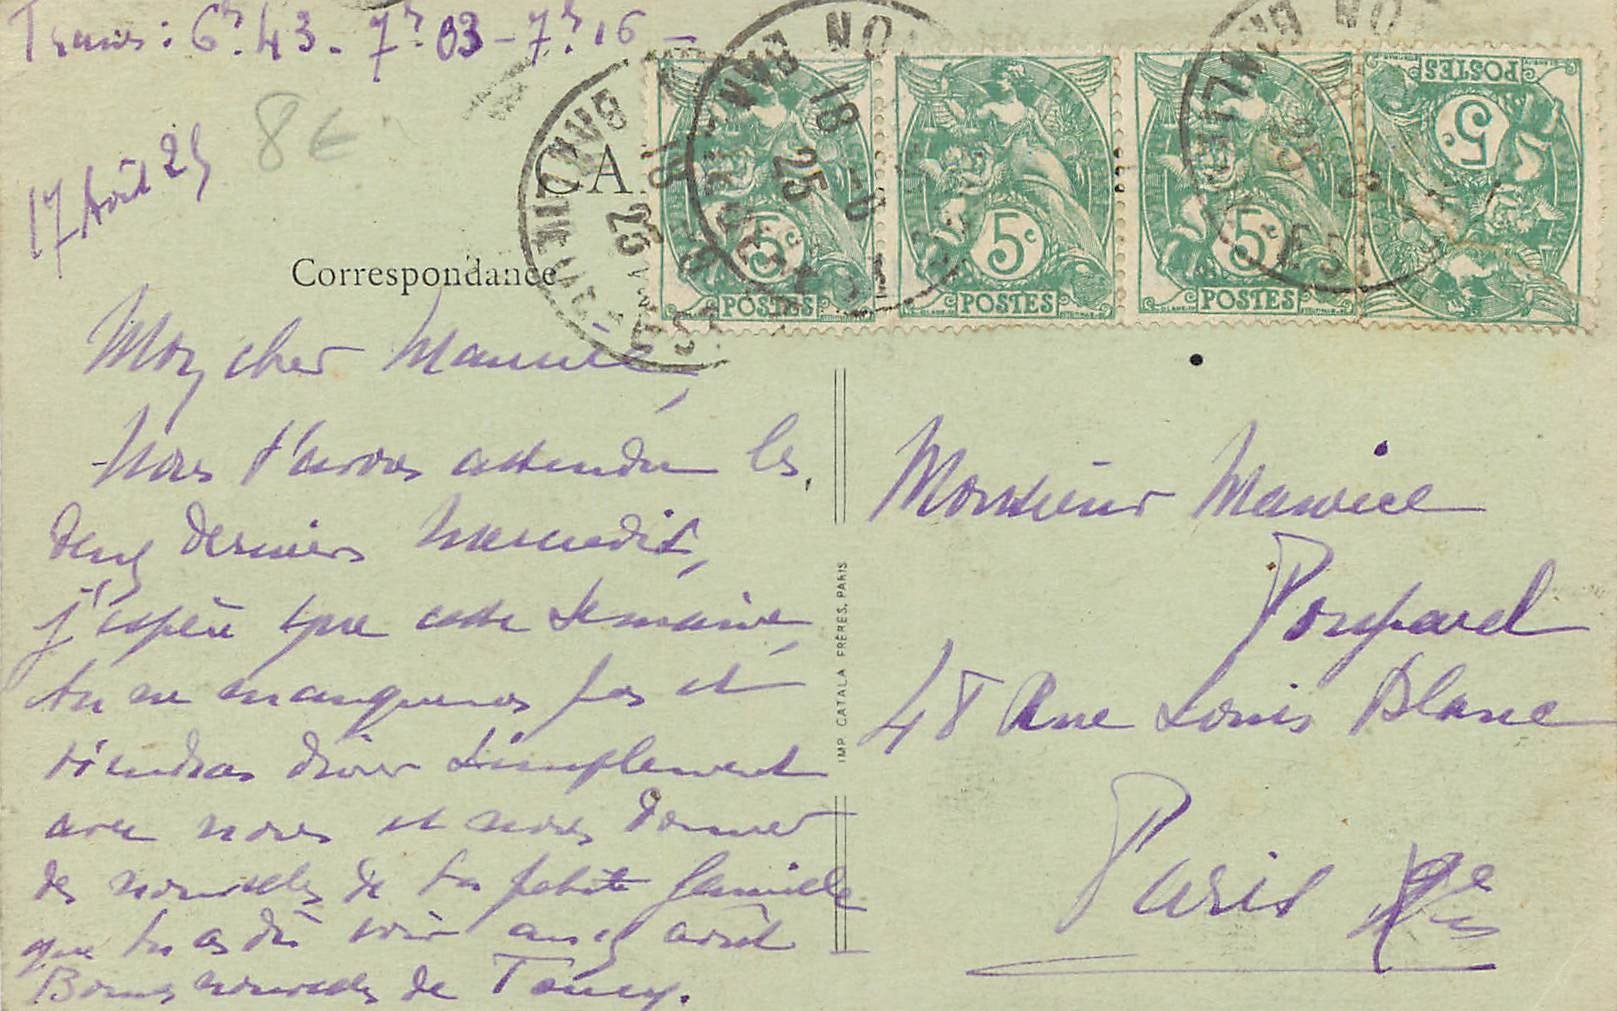 Trains : 6h 43 - 7h 03 - 7h 16 -
17 Août 25
8 €
CA
Correspondance
5c POSTES
5c POSTES
5c POSTES
5c POSTES
18 -8 25
EST
Mon cher Maurice,
Nous t'avons attendu les
deux derniers mercredis,
j'espère que cette semaine,
tu ne manqueras pas et
viendras dîner simplement
avec nous et nous donner
des nouvelles de ta petite famille
que tu as dû voir au 15 août
Bonnes nouvelles de Toucy.
IMP. CATALA FRÈRES, PARIS
Monsieur Maurice
Poupard
48 Rue Louis Blanc
Paris